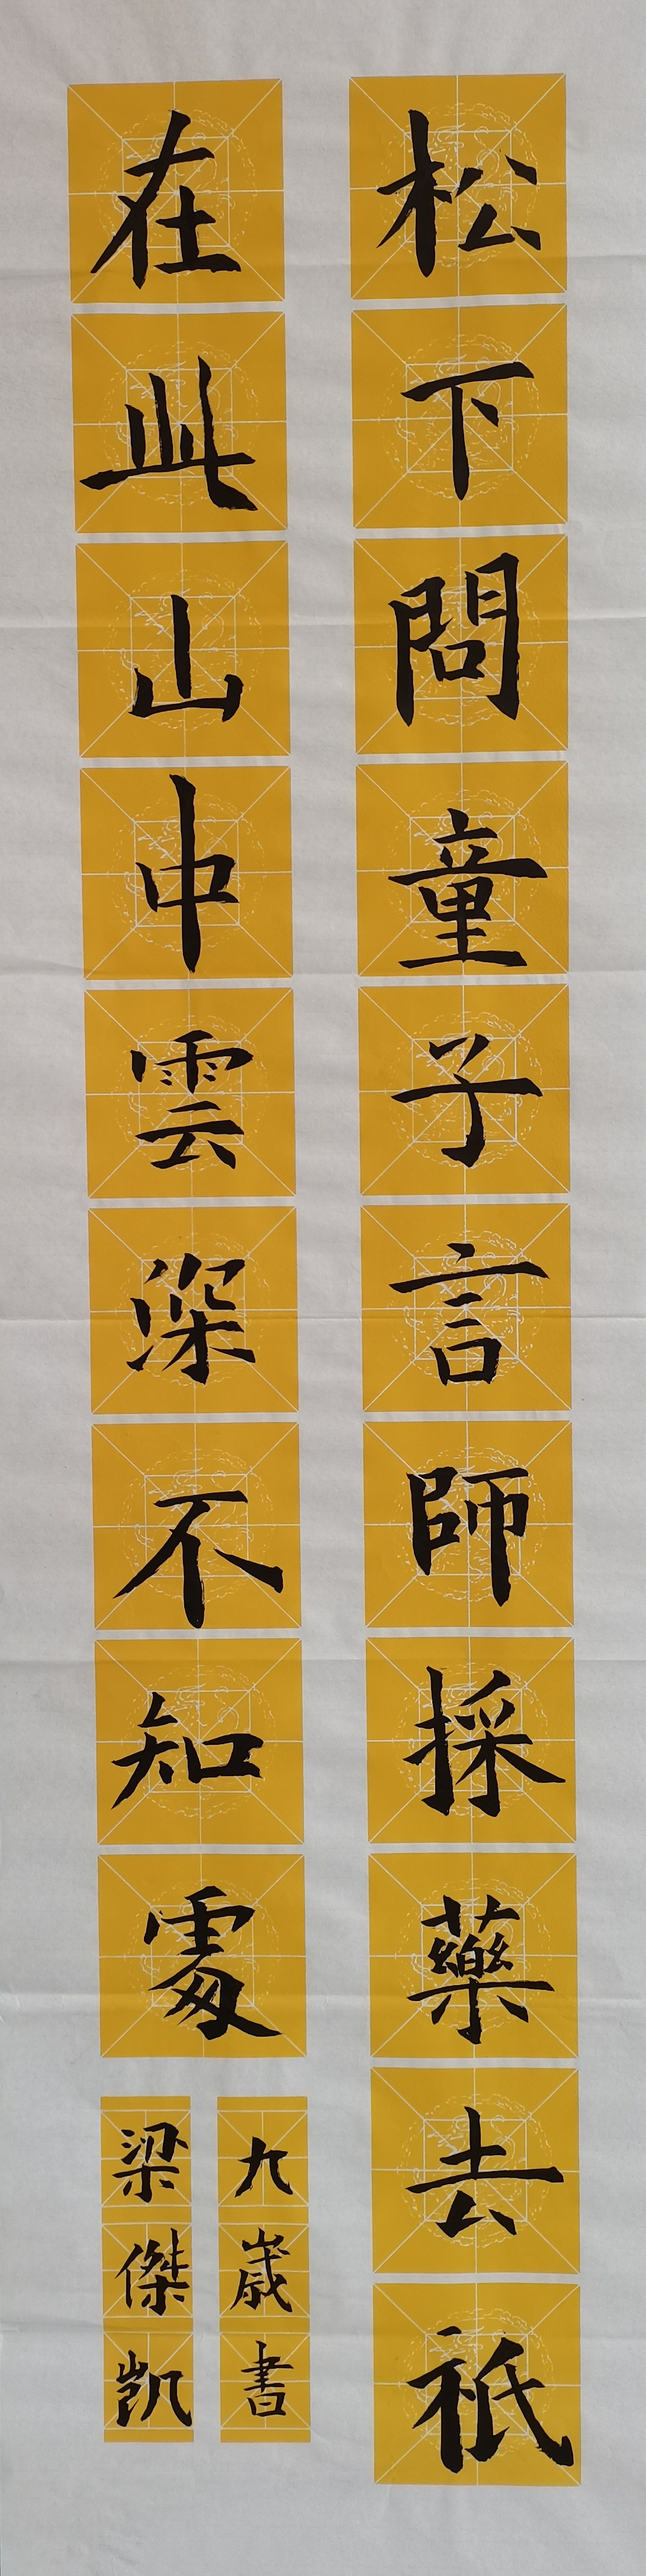 松下問童子言師採藥去祇
在此山中雲深不知處
九歲書
梁傑凱